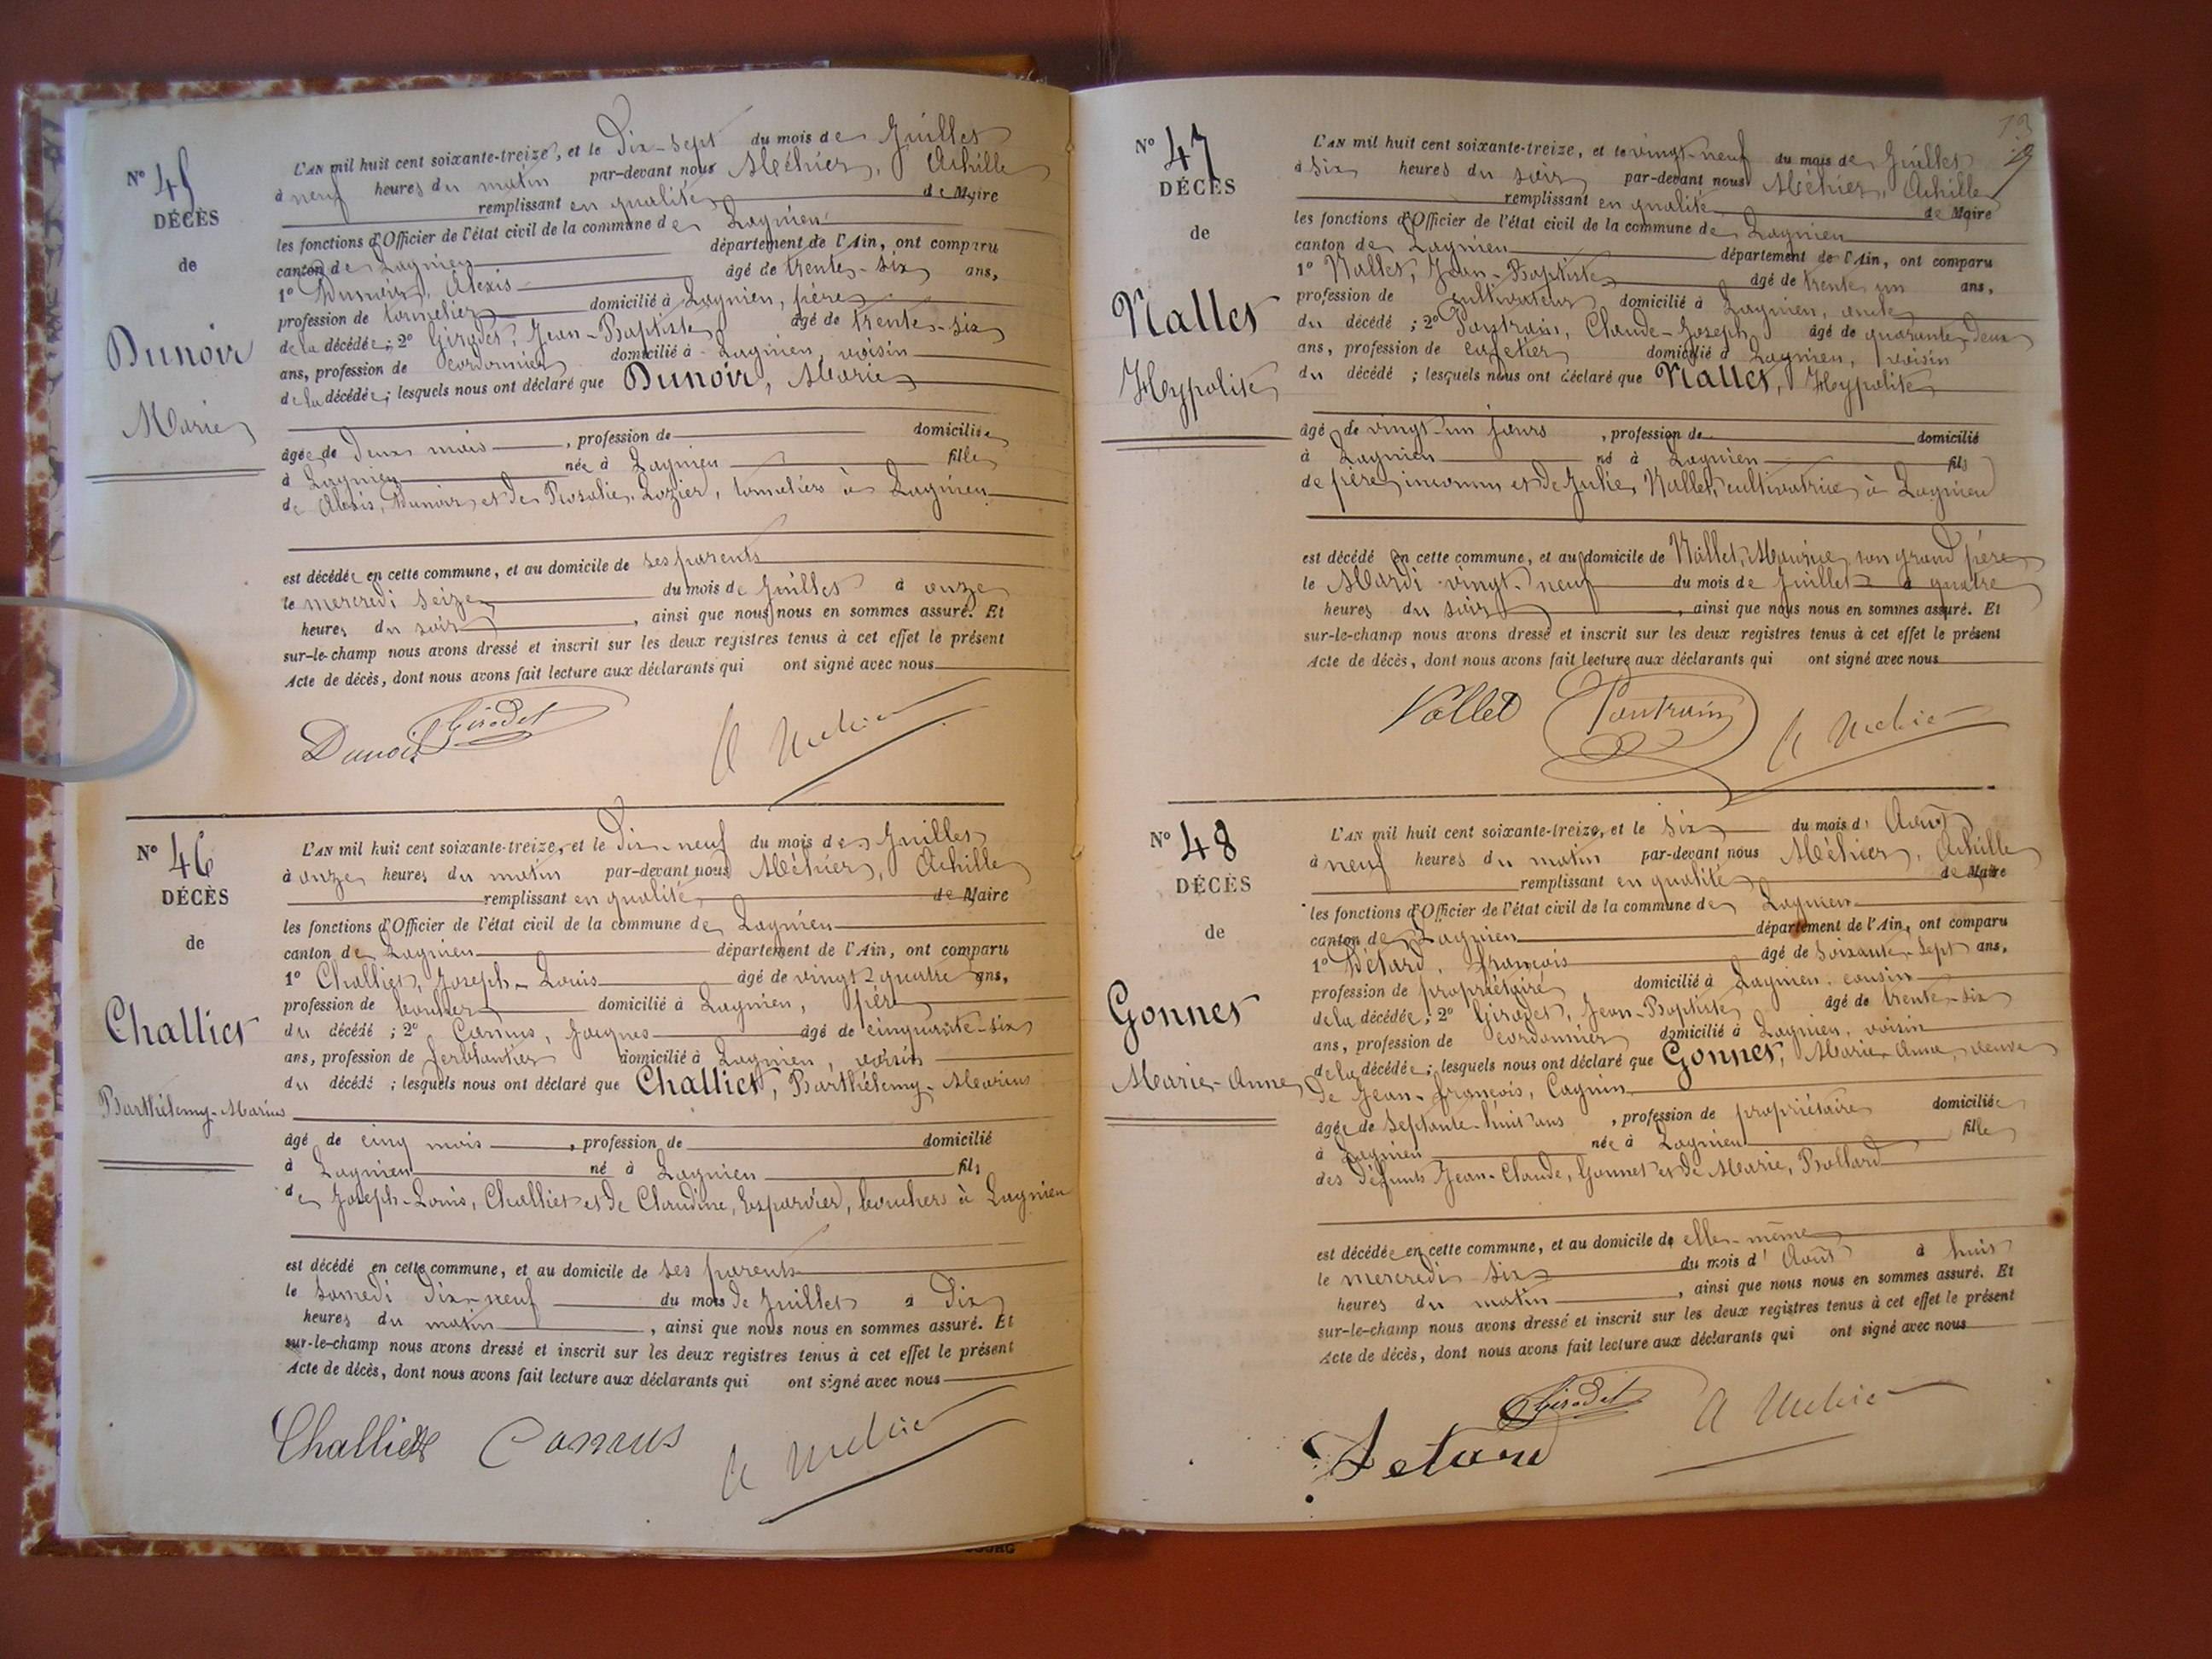 N° 45
DÉCÈS
de
Dunoir
Marie
L'AN mil huit cent soixante-treize, et le Dix-Sept du mois de Juillet
à neuf heures du matin par-devant nous Méhier, Achille
remplissant en qualité de Maire
les fonctions d'Officier de l'état civil de la commune de Lagnieu
canton de Lagnieu département de l'Ain, ont comparu
1° Dunoir, Alexis âgé de trente-six ans,
profession de tonnelier domicilié à Lagnieu, père
de la décédée; 2° Girodet, Jean-Baptiste âgé de trente-six
ans, profession de cordonnier domicilié à Lagnieu, voisin
de la décédée; lesquels nous ont déclaré que Dunoir, Marie
âgée de Deux mois, profession de domiciliée
à Lagnieu née à Lagnieu fille
de Alexis, Dunoir et de Rosalie, Lozier, tonneliers à Lagnieu
est décédée en cette commune, et au domicile de ses parents
le mercredi seize du mois de Juillet à onze
heures du soir, ainsi que nous nous en sommes assuré. Et
sur-le-champ nous avons dressé et inscrit sur les deux registres tenus à cet effet le présent
Acte de décès, dont nous avons fait lecture aux déclarants qui ont signé avec nous
Dunoir Girodet A Méhier
N° 46
DÉCÈS
de
Challiet
Barthélemy-Marius
L'AN mil huit cent soixante-treize, et le Dix-neuf du mois de Juillet
à onze heures du matin par-devant nous Méhier, Achille
remplissant en qualité de Maire
les fonctions d'Officier de l'état civil de la commune de Lagnieu
canton de Lagnieu département de l'Ain, ont comparu
1° Challiet, Joseph-Louis âgé de vingt-quatre ans,
profession de boucher domicilié à Lagnieu, père
du décédé; 2° Camus, Jacques âgé de cinquante-six
ans, profession de ferblantier domicilié à Lagnieu, voisin
du décédé; lesquels nous ont déclaré que Challiet, Barthélemy-Marius
âgé de cinq mois, profession de domicilié
à Lagnieu né à Lagnieu fils
de Joseph-Louis, Challiet et de Claudine, Esparvier, bouchers à Lagnieu
est décédé en cette commune, et au domicile de ses parents
le samedi dix-neuf du mois de Juillet à Dix
heures du matin, ainsi que nous nous en sommes assuré. Et
sur-le-champ nous avons dressé et inscrit sur les deux registres tenus à cet effet le présent
Acte de décès, dont nous avons fait lecture aux déclarants qui ont signé avec nous
Challiet Camus A Méhier
N° 47
DÉCÈS
de
Nallet
Heypolite
L'AN mil huit cent soixante-treize, et le vingt-neuf du mois de Juillet
à six heures du soir par-devant nous Méhier, Achille
remplissant en qualité de Maire
les fonctions d'Officier de l'état civil de la commune de Lagnieu
canton de Lagnieu département de l'Ain, ont comparu
1° Nallet, Jean-Baptiste âgé de trente un ans,
profession de cultivateur domicilié à Lagnieu, oncle
du décédé; 2° Pautrain, Claude-Joseph, âgé de quarante-deux
ans, profession de cafetier domicilié à Lagnieu, voisin
du décédé; lesquels nous ont déclaré que Nallet, Heypolite
âgé de vingt-un jours, profession de domicilié
à Lagnieu né à Lagnieu fils
de père inconnu et de Julie, Nallet, cultivatrice à Lagnieu
est décédé en cette commune, et au domicile de Nallet, Maurice, son grand père
le Mardi vingt-neuf du mois de Juillet à quatre
heures du soir, ainsi que nous nous en sommes assuré. Et
sur-le-champ nous avons dressé et inscrit sur les deux registres tenus à cet effet le présent
Acte de décès, dont nous avons fait lecture aux déclarants qui ont signé avec nous
Nallet Pautrain A Méhier
N° 48
DÉCÈS
de
Gonnet
Marie-Anne
L'AN mil huit cent soixante-treize, et le six du mois d'Août
à neuf heures du matin par-devant nous Méhier, Achille
remplissant en qualité de Maire
les fonctions d'Officier de l'état civil de la commune de Lagnieu
canton de Lagnieu département de l'Ain, ont comparu
1° Détard, François âgé de soixante-sept ans,
profession de propriétaire domicilié à Lagnieu, cousin
de la décédée; 2° Girodet, Jean-Baptiste âgé de trente-six
ans, profession de cordonnier domicilié à Lagnieu, voisin
de la décédée; lesquels nous ont déclaré que Gonnet, Marie-Anne, veuve
de Jean-François, Cagnin
âgée de septante-huit ans, profession de propriétaire domiciliée
à Lagnieu née à Lagnieu fille
des défunts Jean-Claude, Gonnet et de Marie, Bollard
est décédée en cette commune, et au domicile de elle-même
le mercredi six du mois d'Août à huit
heures du matin, ainsi que nous nous en sommes assuré. Et
sur-le-champ nous avons dressé et inscrit sur les deux registres tenus à cet effet le présent
Acte de décès, dont nous avons fait lecture aux déclarants qui ont signé avec nous
Detard Girodet A Méhier